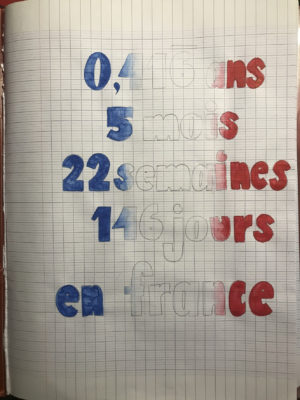 0,416 ans
5 mois
22 semaines
146 jours
en france